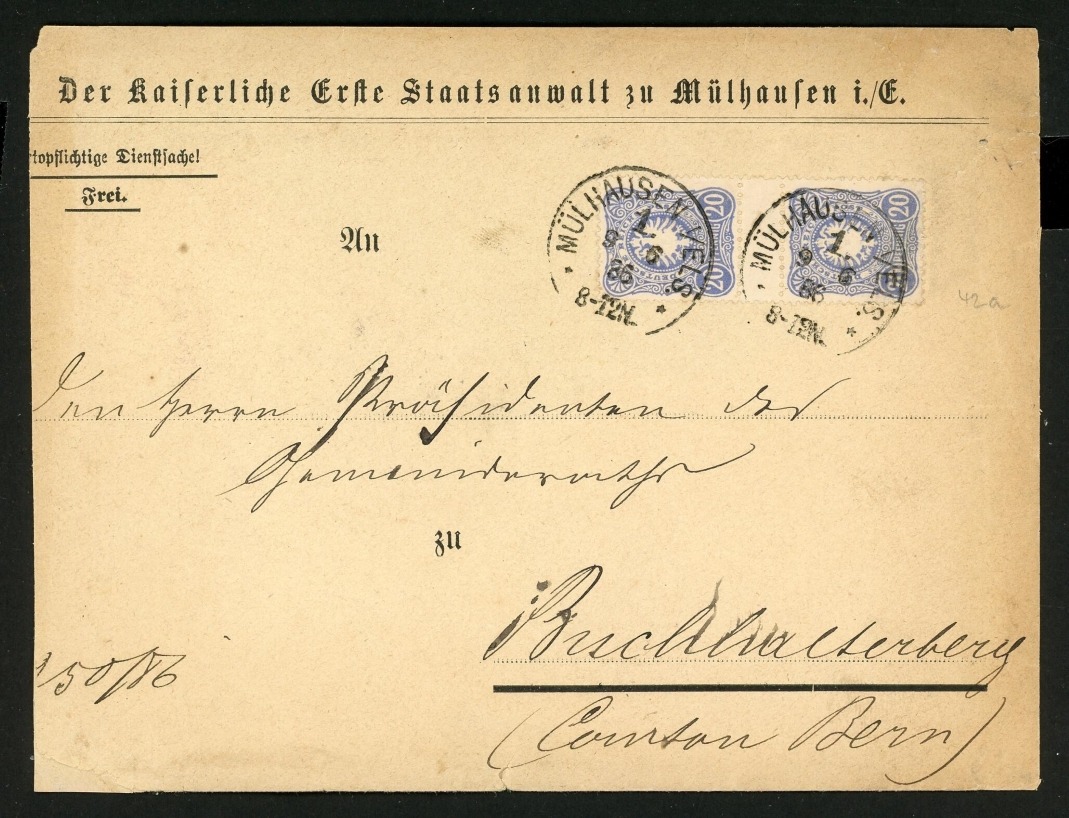 Der Kaiserliche Erste Staatsanwalt zu Mülhausen i./E.
rtopflichtige Dienstsache!
Frei.
An
MÜLHAUSEN I/ELS.
1
9 6
86
8-12N.
20
20
MÜLHAUSEN I/ELS.
1
9 6
86
8-12N.
20
42a
Den Herrn Präsidenten des
Gemeinderaths
zu
Buschhalterberg
(Canton Bern)
150/86